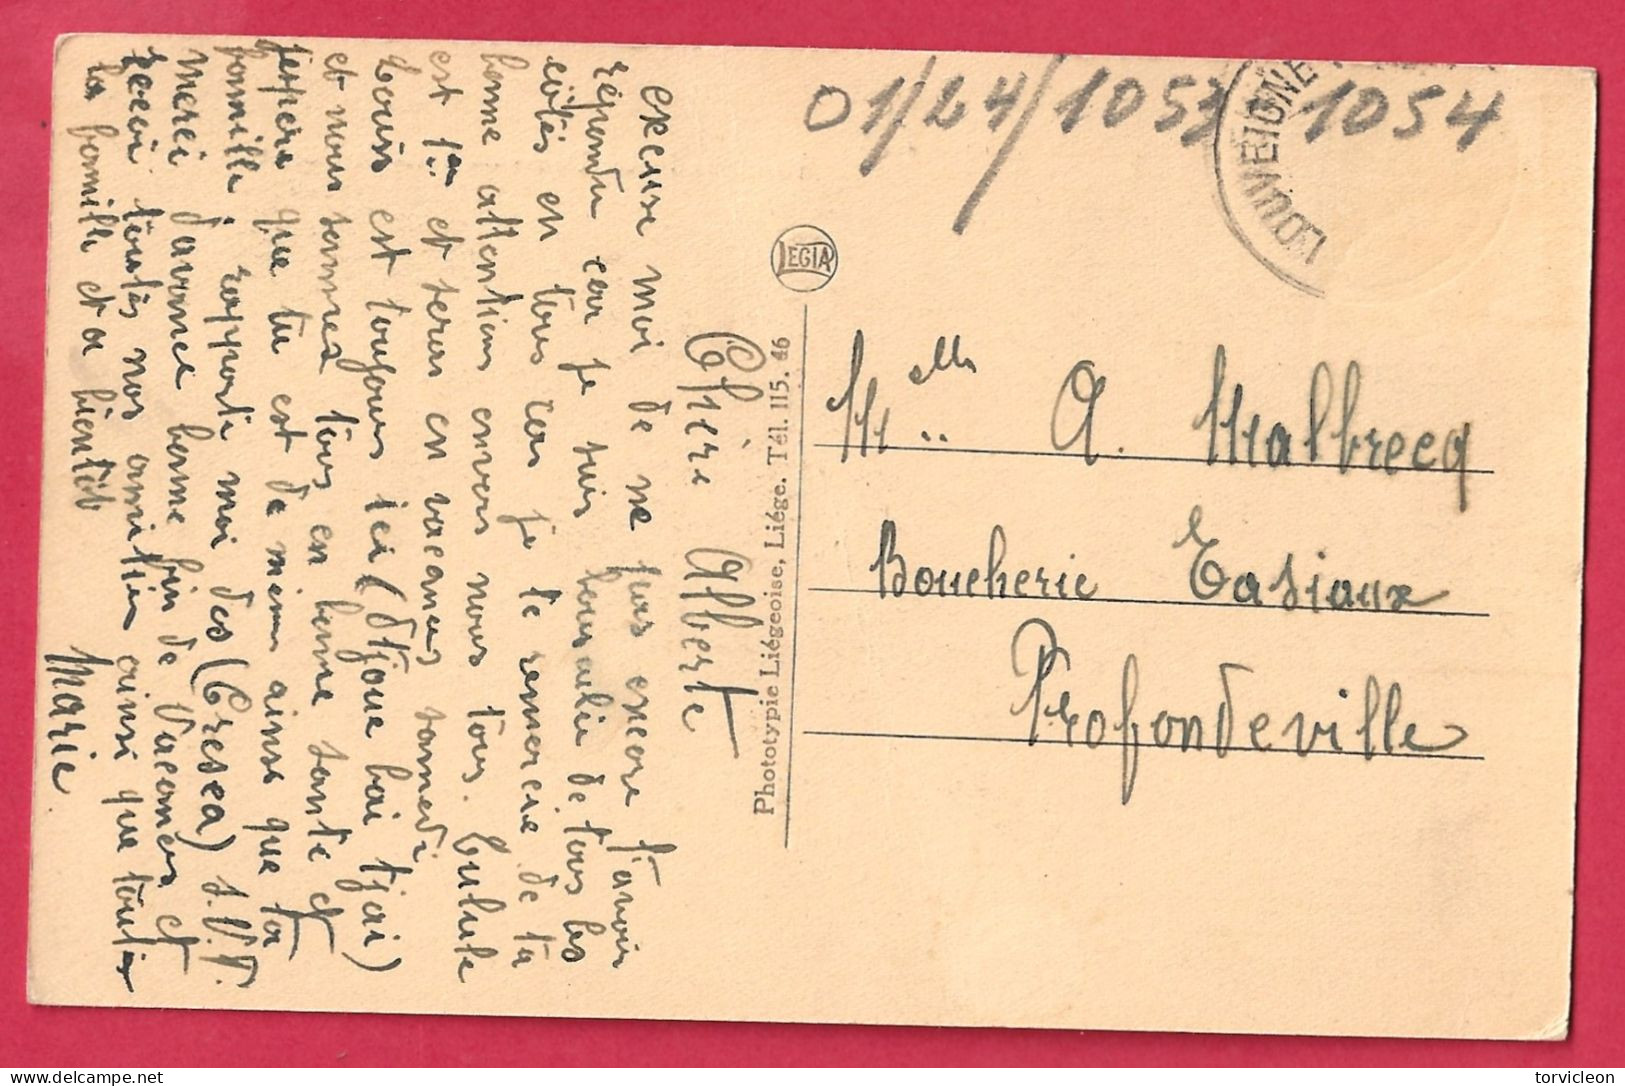 Chère Alberte
excuse moi de ne pas encore t'avoir
répondu car je suis bousculée de tous les
côtés en tous cas je te remercie de ta
bonne attention envers nous tous. Lulule
est 1re et serons en vacances samedi
Louis est toujours ici (djoue bai tjai)
et nous sommes tous en bonne santé et
j'espère que tu est de même ainsi que ta
famille, rapporte moi des (Cresca) s.v.p.
merci d'avance bonne fin de vacances et
reçoi toutes nos amitiés ainsi que toutes
la famille et a bientôt
Marie.
Phototypie Liégeoise, Liége. Tél. 115.46
LEGIA
01/24/1053 1054
LOUVEIGNE
Melle A. Malbrecq
Boucherie Tasiaux
Profondeville
delcampe.net
torvicleon